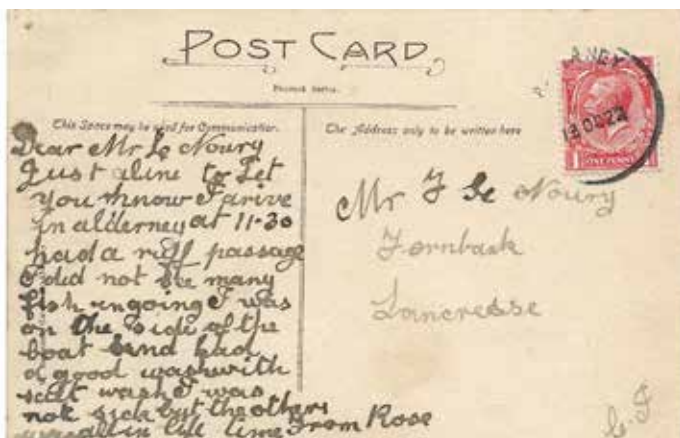 POST CARD
This Space may be used for Communication.
The Address only to be written here
ONE PENNY
Dear Mr Le Noury
Just a line to Let
you know I arive
in alderney at 11-30
had a ruff passage
I did not see many
fish in going I was
on the side of the
boat and had
a good wash with
salt wash I was
not sick but the others
all in
time From Rose
Mr J Le Noury
Fernbank
Lancresse